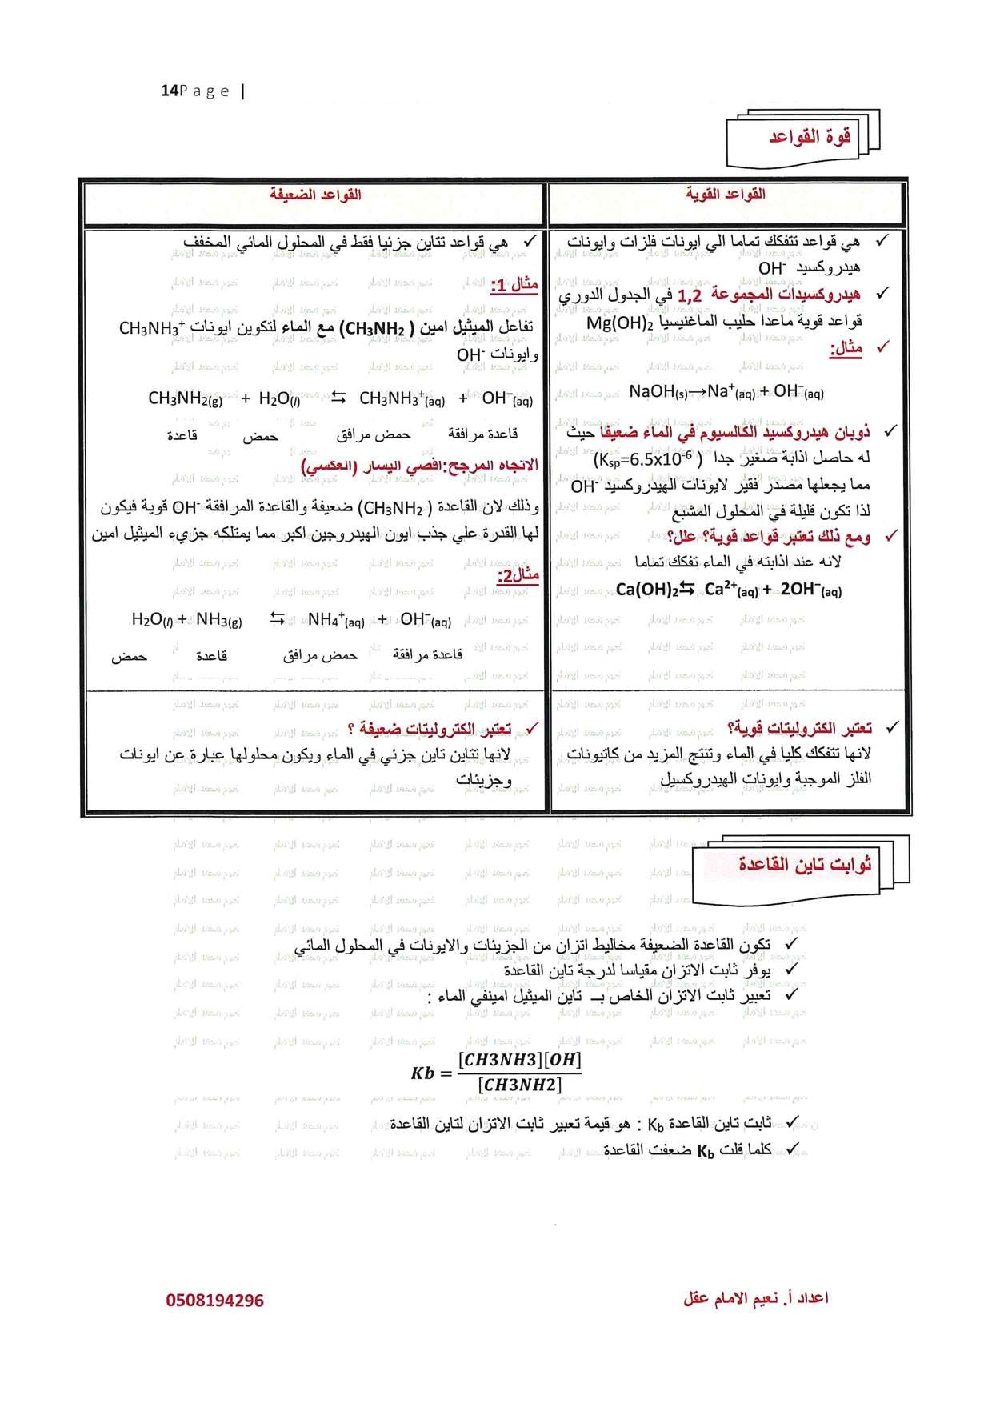 14P a g e |
قوة القواعد
القواعد القوية
القواعد الضعيفة
✓ هي قواعد تتفكك تماما الي ايونات فلزات وايونات
هيدروكسيد OH⁻
✓ هيدروكسيدات المجموعة 1,2 في الجدول الدوري
قواعد قوية ماعدا حليب الماغنيسيا Mg(OH)₂
✓ مثال:
NaOH(s)→Na⁺(aq) + OH⁻(aq)
✓ ذوبان هيدروكسيد الكالسيوم في الماء ضعيفا حيث
له حاصل اذابة صغير جدا ( Ksp=6.5x10⁻⁶)
مما يجعلها مصدر فقير لايونات الهيدروكسيد OH⁻
لذا تكون قليلة في المحلول المشبع
✓ ومع ذلك تعتبر قواعد قوية؟ علل؟
لانه عند اذابته في الماء تفكك تماما
Ca(OH)₂⇆ Ca²⁺(aq) + 2OH⁻(aq)
✓ هي قواعد تتاين جزئيا فقط في المحلول المائي المخفف
مثال 1:
تفاعل الميثيل امين ( CH₃NH₂) مع الماء لتكوين ايونات CH₃NH₃⁺
وايونات OH⁻
CH₃NH₂(g) + H₂O(l) ⇆ CH₃NH₃⁺(aq) + OH⁻(aq)
قاعدة مرافقة حمض مرافق حمض قاعدة
الاتجاه المرجح:اقصي اليسار (العكسي)
وذلك لان القاعدة ( CH₃NH₂) ضعيفة والقاعدة المرافقة OH⁻ قوية فيكون
لها القدرة علي جذب ايون الهيدروجين اكبر مما يمتلكه جزيء الميثيل امين
مثال2:
H₂O(l) + NH₃(g) ⇆ NH₄⁺(aq) + OH⁻(aq)
قاعدة مرافقة حمض مرافق قاعدة حمض
✓ تعتبر الكتروليتات قوية؟
لانها تتفكك كليا في الماء وتنتج المزيد من كاتيونات
الفلز الموجبة وايونات الهيدروكسيل
✓ تعتبر الكتروليتات ضعيفة ؟
لانها تتاين تاين جزئي في الماء ويكون محلولها عبارة عن ايونات
وجزيئات
ثوابت تاين القاعدة
✓ تكون القاعدة الضعيفة مخاليط اتزان من الجزيئات والايونات في المحلول المائي
✓ يوفر ثابت الاتزان مقياسا لدرجة تاين القاعدة
✓ تعبير ثابت الاتزان الخاص بــ تاين الميثيل امينفي الماء :
Kb = [CH3NH3][OH] / [CH3NH2]
✓ ثابت تاين القاعدة Kb : هو قيمة تعبير ثابت الاتزان لتاين القاعدة
✓ كلما قلت Kb ضعفت القاعدة
اعداد أ. نعيم الامام عقل
0508194296